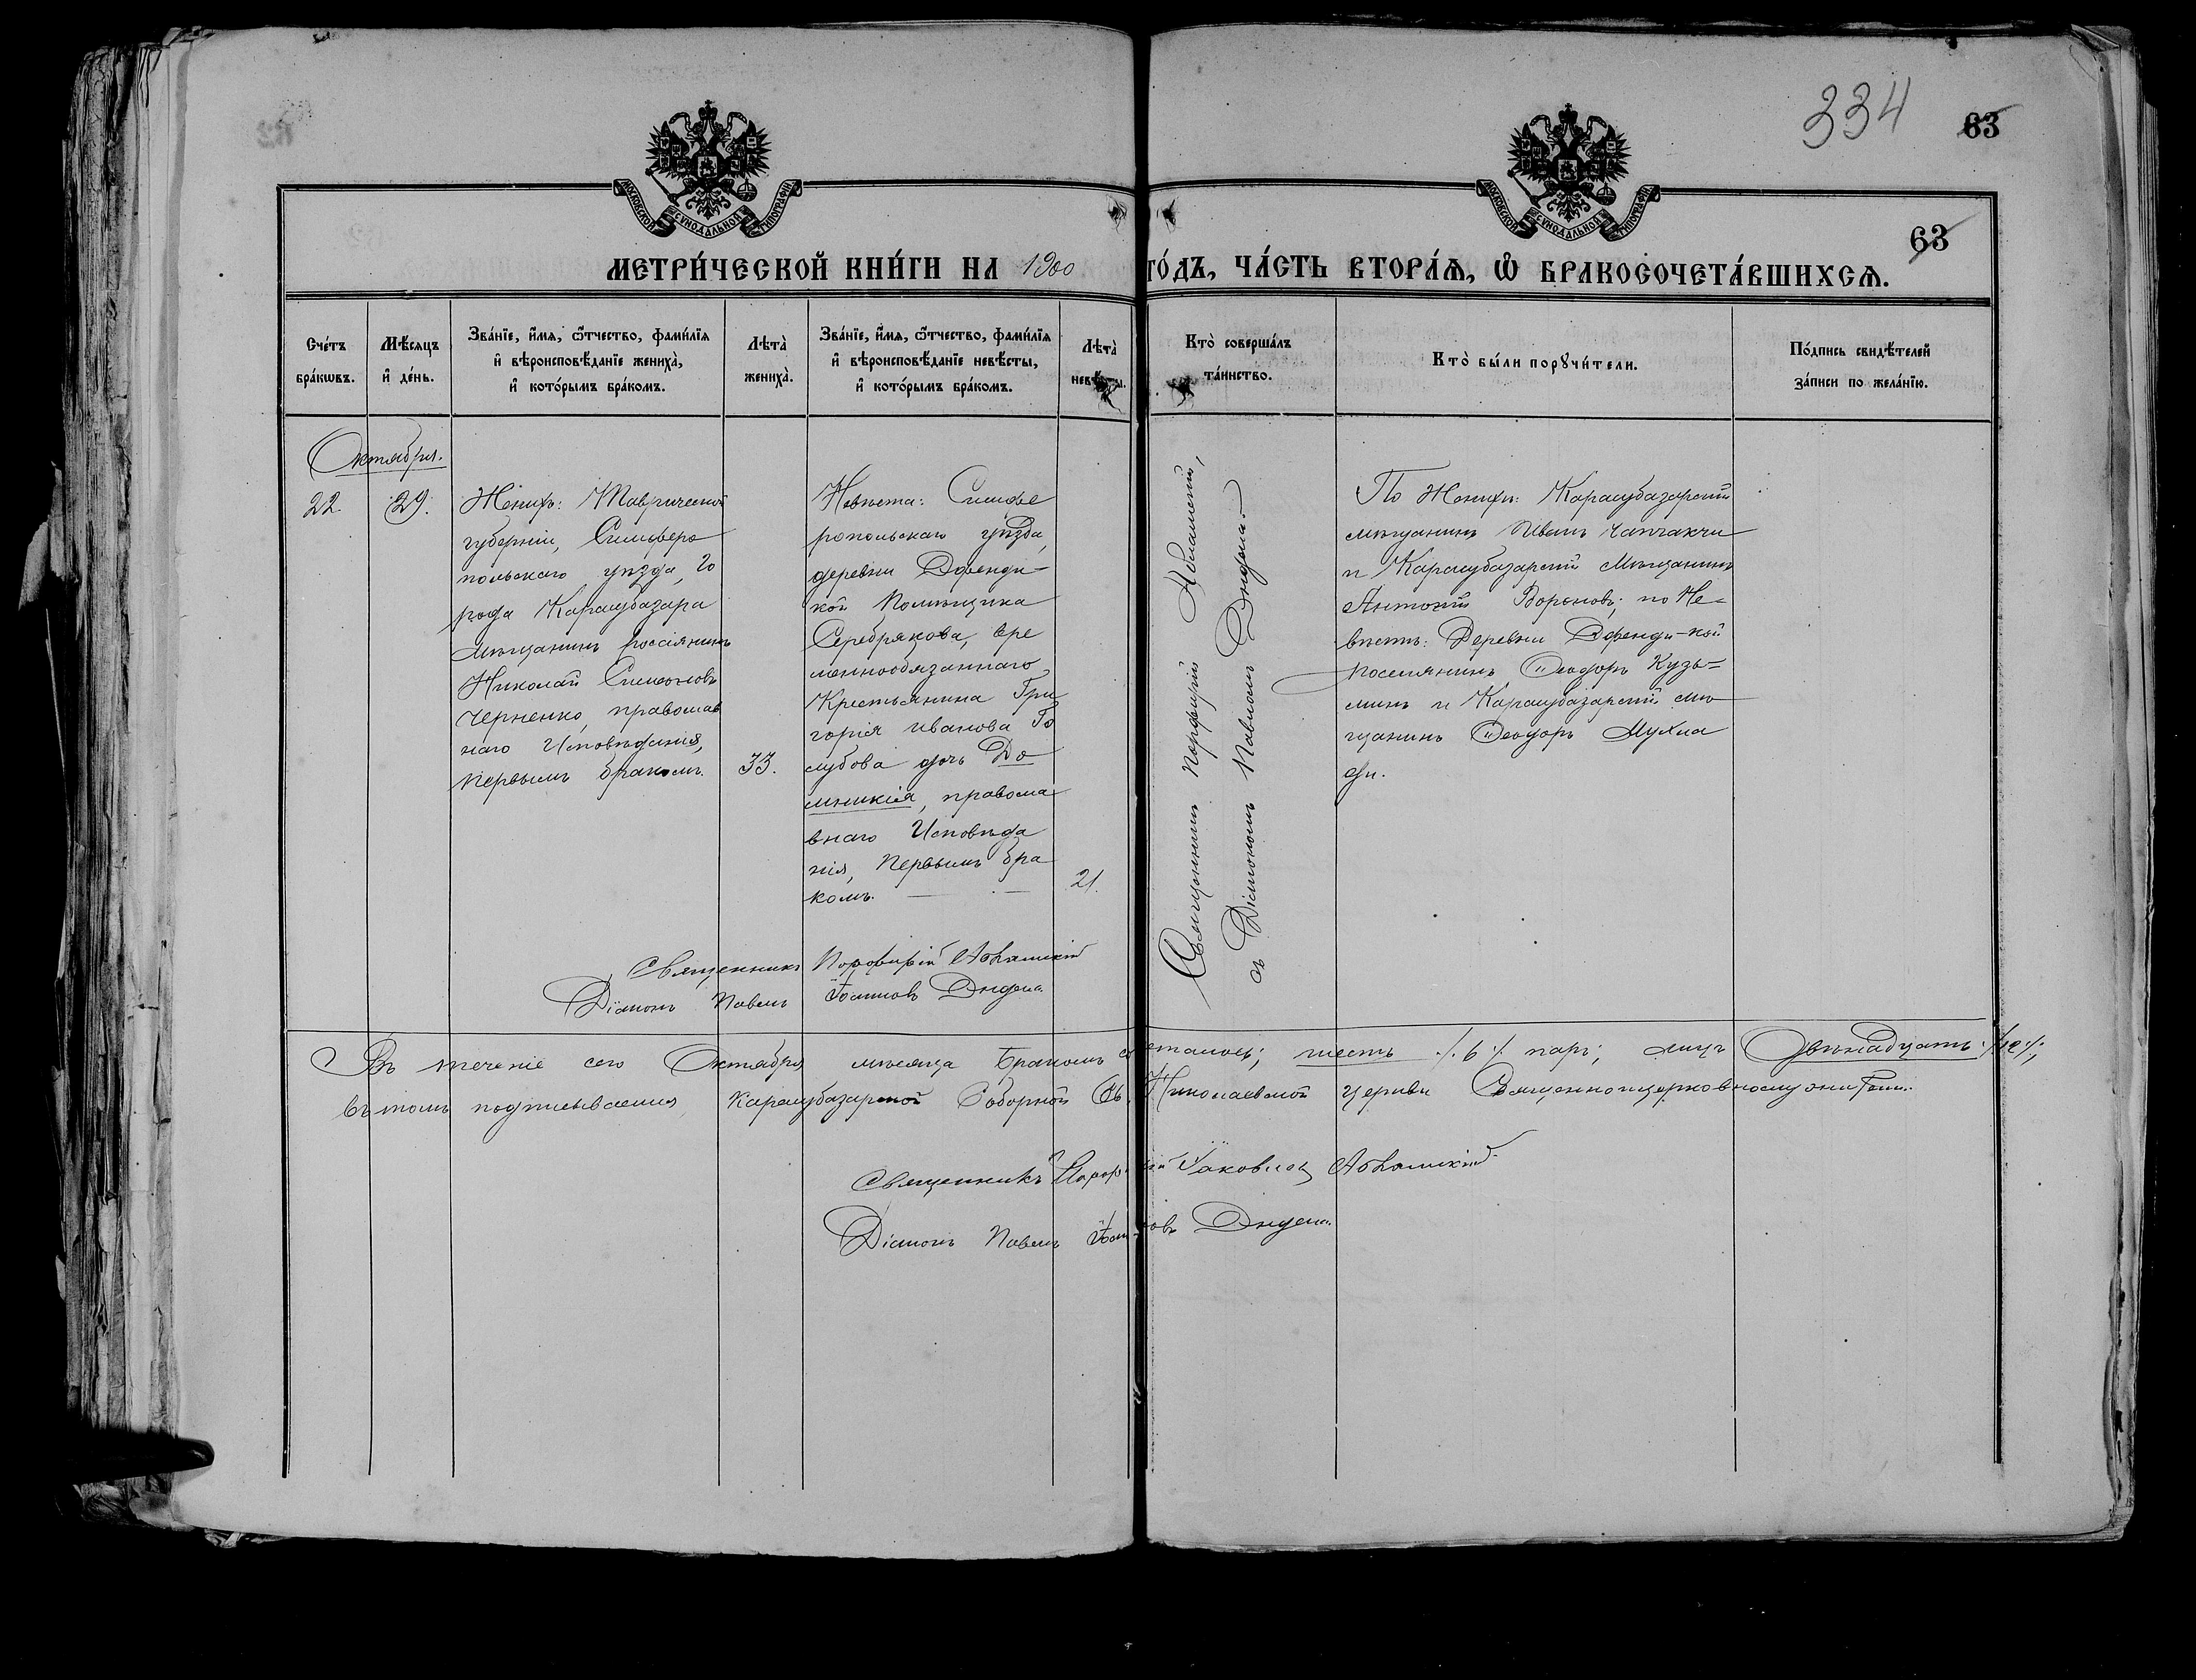 334
63
МОСКОВСКОЙ СѴНОДАЛЬНОЙ ТИПОГРАФІИ
МОСКОВСКОЙ СѴНОДАЛЬНОЙ ТИПОГРАФІИ
63
МЕТРИ́ЧЕСКОЙ КНИ́ГИ НА 1900 ГО́ДЪ, ЧА́СТЬ ВТОРА́Ѧ, Ѡ҆ БРАКОСОЧЕТА́ВШИХСѦ.
Сче́тъ
бра́кѡвъ.
Мѣ́сяцъ
и҆ де́нь.
Зва́нїе, и҆́мѧ, ѻ҆́тчество, фами́лїѧ
и҆ вѣроисповѣ́данїе жениха̀,
и҆ кото́рымъ бра́комъ.
Лѣта̀
жениха̀.
Зва́нїе, и҆́мѧ, ѻ҆́тчество, фами́лїѧ
и҆ вѣроисповѣ́данїе невѣ́сты,
и҆ кото́рымъ бра́комъ.
Лѣта̀
невѣ́сты.
Кто̀ соверша́лъ
та́инство.
Кто̀ бы́ли порꙋчи́тели.
По́дпись свидѣ́телей
за́писи по жела́нїю.
Октября.
22.
29.
Женихъ: Таврической
губерніи, Симферо
польскаго уѣзда, го
рода Карасубазара
мѣщанинъ россіянинъ
Николай Симеоновъ
Черненко, православ
наго Исповѣданія,
первымъ бракомъ.
33.
Невѣста: Симфе
ропольскаго уѣзда,
деревни Эфенди-
кой Помѣщика
Серебрякова, вре
меннообязаннаго
Крестьянина Гри
горія Иванова Го
лубова дочь До
мникія, правосла
внаго Исповѣда
нія, первымъ бра
комъ.
21.
Священникъ Порфирій
съ Діакономъ Павломъ
По Женихѣ: Карасубазарскій
мѣщанинъ Иванъ Чапчакчи
и Карасубазарскій Мѣщанинъ
Антоній Вороновъ; по Не-
вѣстѣ: Деревни Эфенди-кой
поселянинъ Ѳеодоръ Кузь-
минъ и Карасубазарскій мѣ
щанинъ Ѳеодоръ
Священникъ Порфирій
Діаконъ Павелъ Іоанновъ
Въ теченіе сего Октября мѣсяца бракомъ сочеталось; шесть ./.6./. паръ; лицъ двѣнадцать ./.12./.;
въ томъ подписываемся, Карасубазарской Соборной Св. Николаевской церкви Священноцерковнослужители.
Священникъ Порфирій Іаковлевъ
Діаконъ Павелъ Іоанновъ